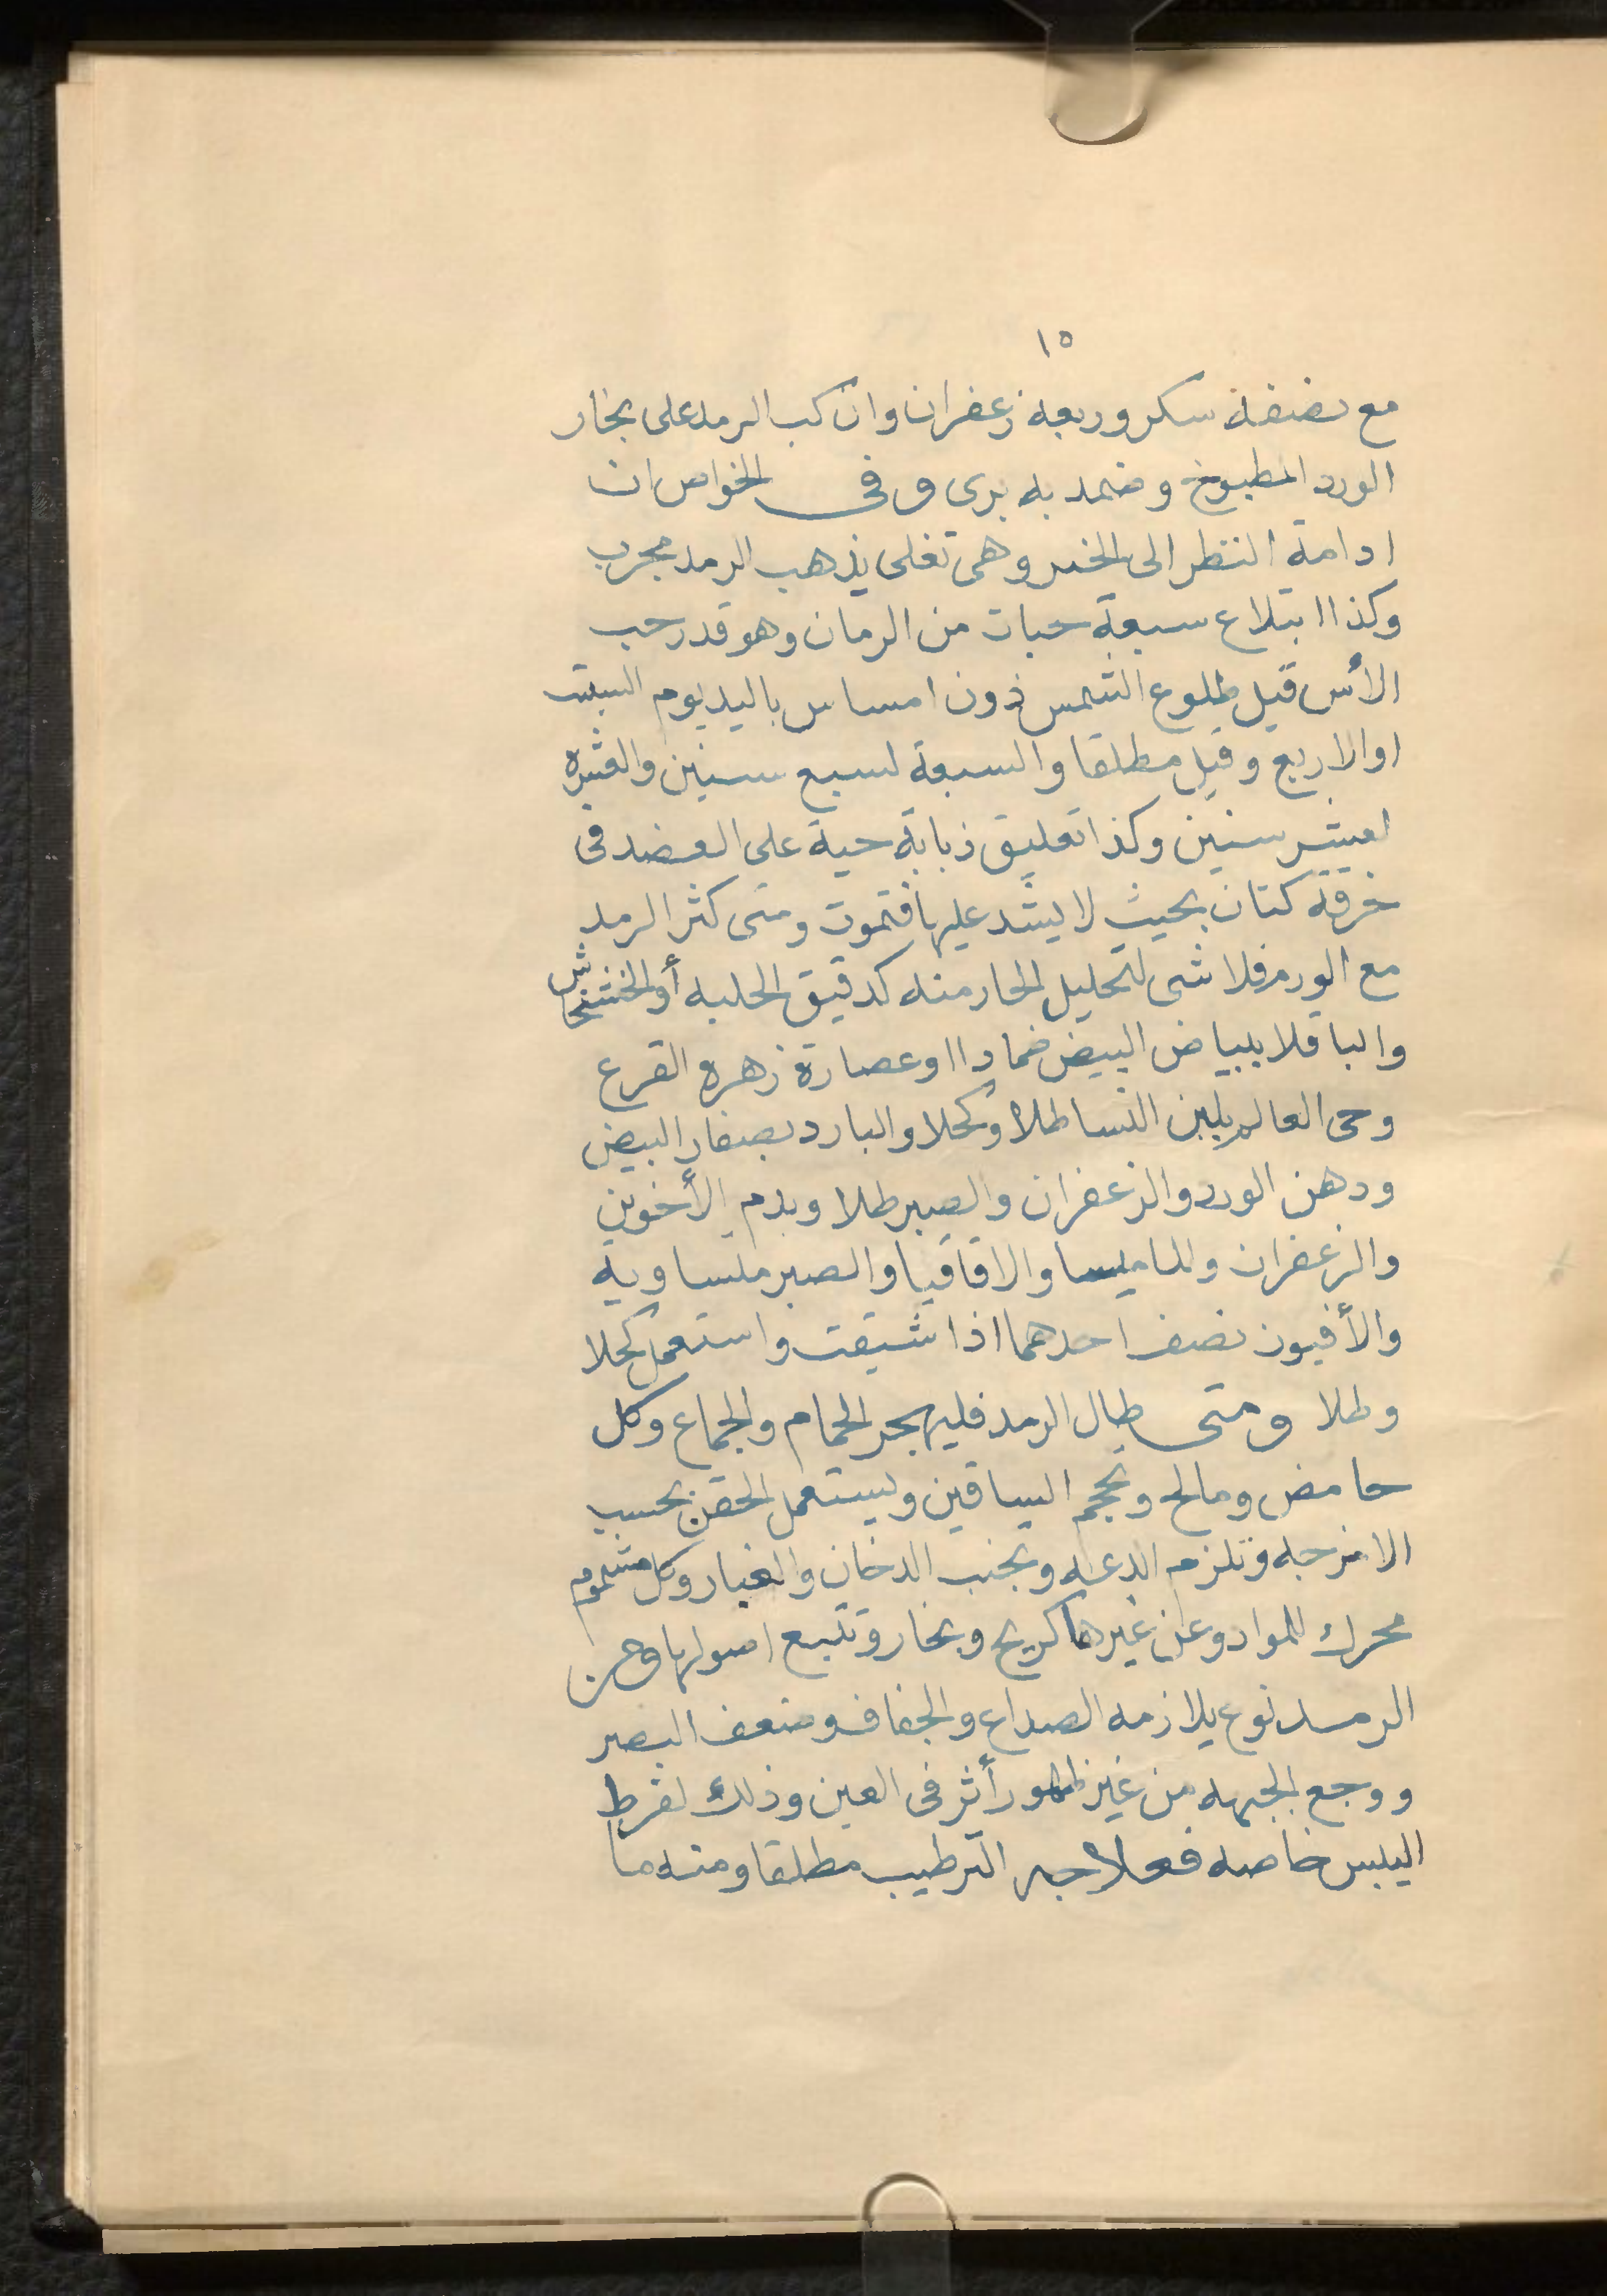 ١٥
مع نصفه سكر وربعه زعفران وان كب الرمد على بخار
الورد المطبوخ وضمد به برى وفى الخواص ان
ادامة النظر الى الخمر وهى تغلى يذهب الرمد مجرب
وكذا ابتلاع سبعة حبات من الرمان وهو قدر حب
الأس قبل طلوع الشمس دون امساس باليد يوم السبت
او الاربع وقيل مطلقا والسبعة لسبع سنين والعشره
لعشر سنين وكذا تعليق ذبابة حية على العضد فى
خرقة كتان بحيث لا يشد عليها فتموت ومتى كثر الرمد
مع الورم فلا شى لتحليل الحار منه كدقيق الحلبه أو الخشخاش
والباقلا ببياض البيض ضمادا او عصارة زهرة القرع
وحى العالم بلبن النسا طلاا وكحلا والبارد بصفار البيض
ودهن الورد والزعفران والصبر طلا وبدم الأخوين
والزعفران والماميسا والاقاقيا والصبر متساوية
والأفيون نصف احدهما اذا شيفت واستعمل كحلا
وطلا ومتى طال الرمد فليهجر الحمام والجماع وكل
حامض ومالح وتحجم الساقين ويستعمل الحقن بحسب
الامزجه وتلزم الدعه وتجنب الدخان والغبار وكل مشموم
محرك للمواد وعن غيرها كريح وبخار وتتبع اصولها ومن
الرمد نوع يلازمه الصداع والجفاف وضعف البصر
ووجع الجبهه من غير ظهور أثر فى العين وذلك لفرط
اليبس خاصه فعلاجه الترطيب مطلقا ومنه ما